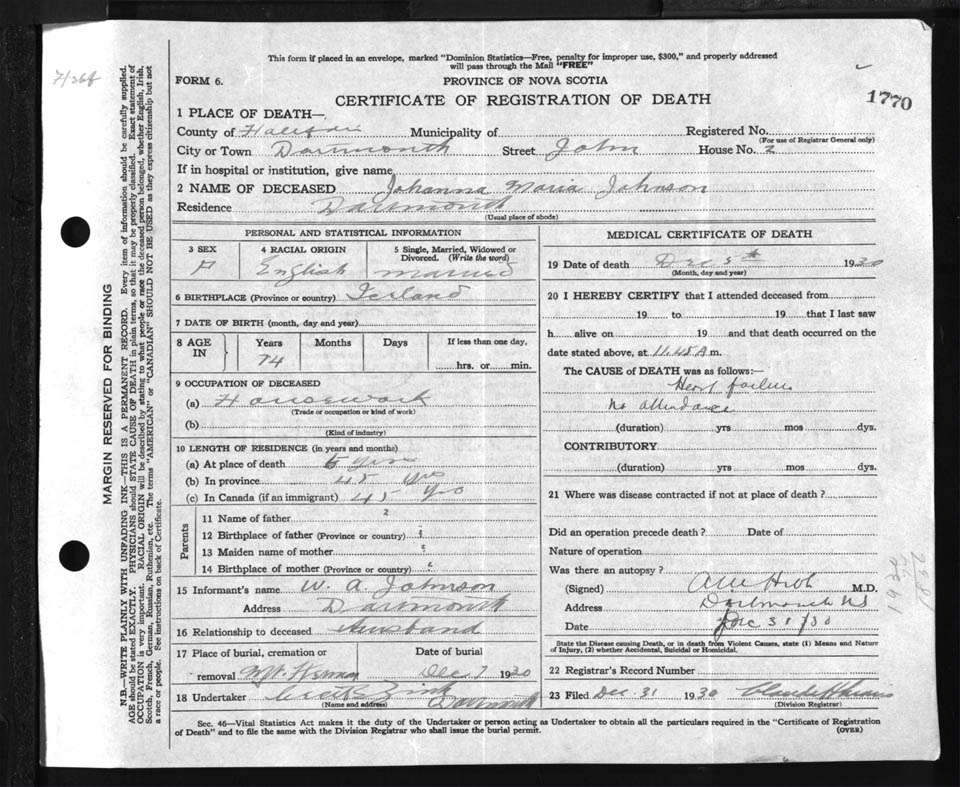 This form if placed in an envelope, marked "Dominion Statistics—Free, penalty for improper use, $300," and properly addressed
will pass through the Mail "FREE"
FORM 6.
PROVINCE OF NOVA SCOTIA
CERTIFICATE OF REGISTRATION OF DEATH
1770
1 PLACE OF DEATH—
County of Halifax Municipality of Registered No.
(For use of Registrar General only)
City or Town Dartmouth Street John House No. 2
If in hospital or institution, give name
2 NAME OF DECEASED Johanna Maria Johnson
Residence Dartmouth
(Usual place of abode)
MARGIN RESERVED FOR BINDING
N.B.—WRITE PLAINLY WITH UNFADING INK—THIS IS A PERMANENT RECORD. Every item of information should be carefully supplied.
AGE should be stated EXACTLY. PHYSICIANS should STATE CAUSE OF DEATH in plain terms, so that it may be properly classified. Exact statement of
OCCUPATION is very important. RACIAL ORIGIN will be described by stating to what people or race the deceased person belonged, whether English, Irish,
Scotch, French, German, Russian, Ruthenian, etc. The terms "AMERICAN" or "CANADIAN" SHOULD NOT BE USED as they express citizenship but not
a race or people. See instructions on back of Certificate.
PERSONAL AND STATISTICAL INFORMATION
3 SEX
F
4 RACIAL ORIGIN
English
5 Single, Married, Widowed or
Divorced. (Write the word)
married
6 BIRTHPLACE (Province or country) Ierland
7 DATE OF BIRTH (month, day and year)
8 AGE
IN
Years Months Days If less than one day,
74
hrs. or min.
9 OCCUPATION OF DECEASED
(a) Housework
(Trade or occupation or kind of work)
(b)
(Kind of industry)
10 LENGTH OF RESIDENCE (in years and months)
(a) At place of death 5 years
(b) In province 45 yrs
(c) In Canada (if an immigrant) 45 yrs
Parents
11 Name of father ?
12 Birthplace of father (Province or country) ?
13 Maiden name of mother ?
14 Birthplace of mother (Province or country) ?
15 Informant's name W. A. Johnson
Address Dartmouth
16 Relationship to deceased Husband
17 Place of burial, cremation or
removal Mt. Hermon
Date of burial
Dec 7 1930
18 Undertaker Zink
(Name and address) Dartmouth
MEDICAL CERTIFICATE OF DEATH
19 Date of death Dec 5th 1930
(Month, day and year)
20 I HEREBY CERTIFY that I attended deceased from
19 to 19 that I last saw
h alive on 19 and that death occurred on the
date stated above, at 11.45 A m.
The CAUSE of DEATH was as follows:—
Heart failure
No attendance
(duration) yrs mos dys.
CONTRIBUTORY
(duration) yrs mos dys.
21 Where was disease contracted if not at place of death?
Did an operation precede death? Date of
Nature of operation
Was there an autopsy?
(Signed) M.D.
Address Dartmouth NS
Date Dec 31/30
State the Disease causing Death, or in death from Violent Causes, state (1) Means and Nature
of Injury, (2) whether Accidental, Suicidal or Homicidal.
22 Registrar's Record Number
23 Filed Dec 31 1930
(Division Registrar)
Sec. 46—Vital Statistics Act makes it the duty of the Undertaker or person acting as Undertaker to obtain all the particulars required in the "Certificate of Registration
of Death" and to file the same with the Division Registrar who shall issue the burial permit.
(OVER)